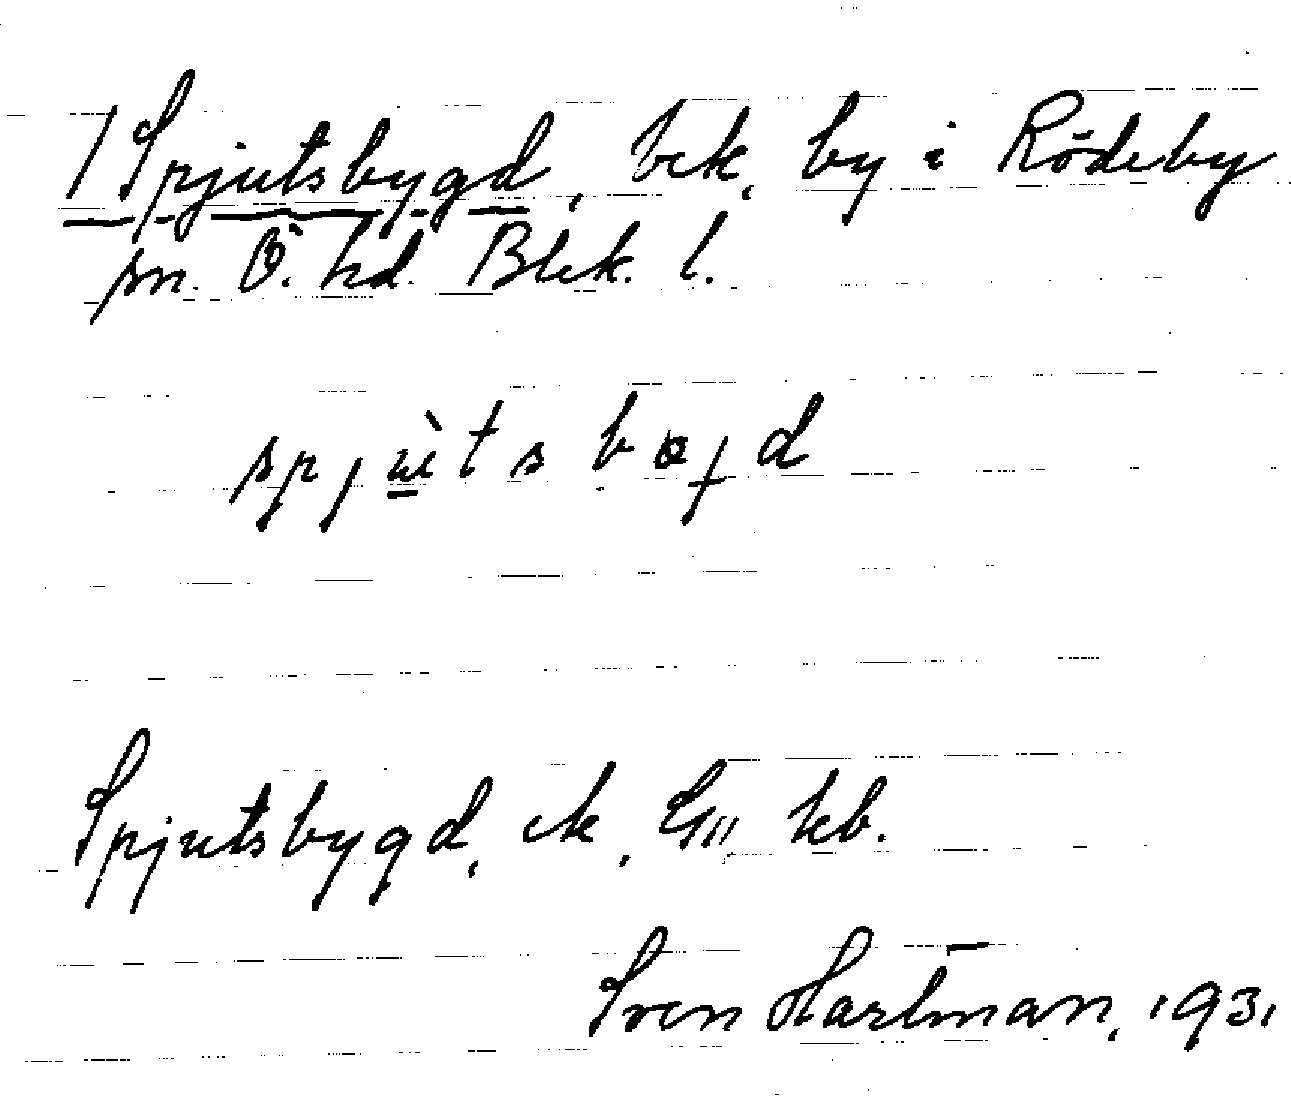 1 Spjutsbygd, bek. by i Rödeby
sn. Ö. hd. Blek. l.
Spjutsbygd, ek. kb.
Sven Hartman, 1931